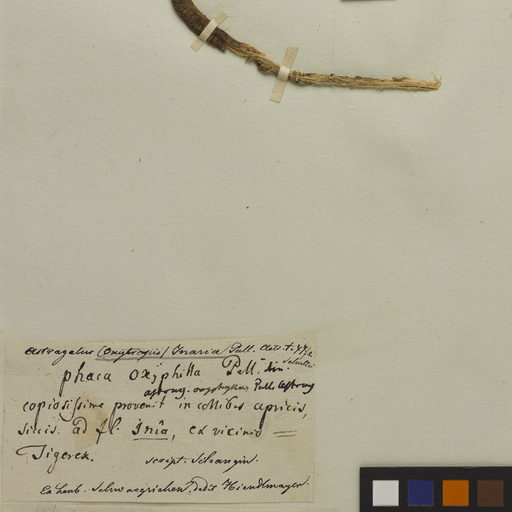 Astragalus (Oxytropis) Inaria Pall. Astr. t. 77/2
phaca oxÿphilla Pall. Lin.
astrag. oxyphyllus Pall. Astrag
copiosissime provenit in collibus apricis,
siccis. ad fl. Iniâ, et vicinio =
Tigerek. script. Schangin.
Ex herb. Schwaegrichen, dedit Hiendlmayer.